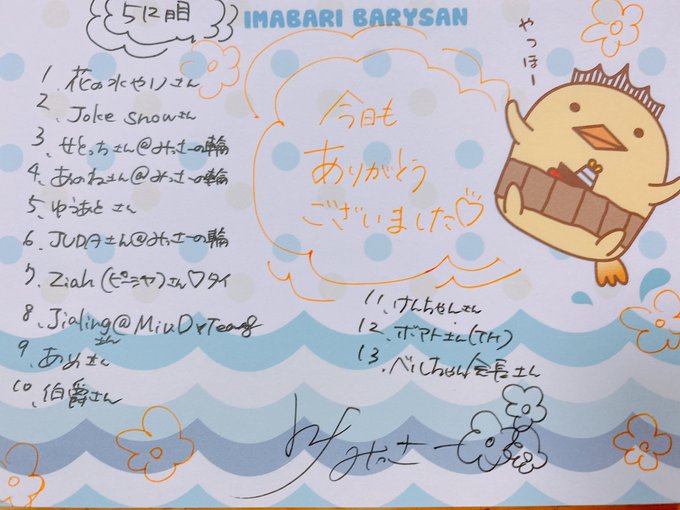 512日目
IMABARI BARYSAN
やっほー
1、花の水やりさん
2、Joke snowさん
3、せとっちさん@みっさーの輪
4、あのねさん@みっさーの輪
5、ゆうあとさん
6、JUDAさん@みっさーの輪
7、Ziah(ピーシャ)さん♡タイ
8、Jialing@MiuD♥Teamgさん
9、あめさん
10、伯爵さん
今日も
ありがとう
ございました♡
11、けんちゃんさん
12、ボアトさん(TH)
13、べしちゃん会長さん
by みっさー